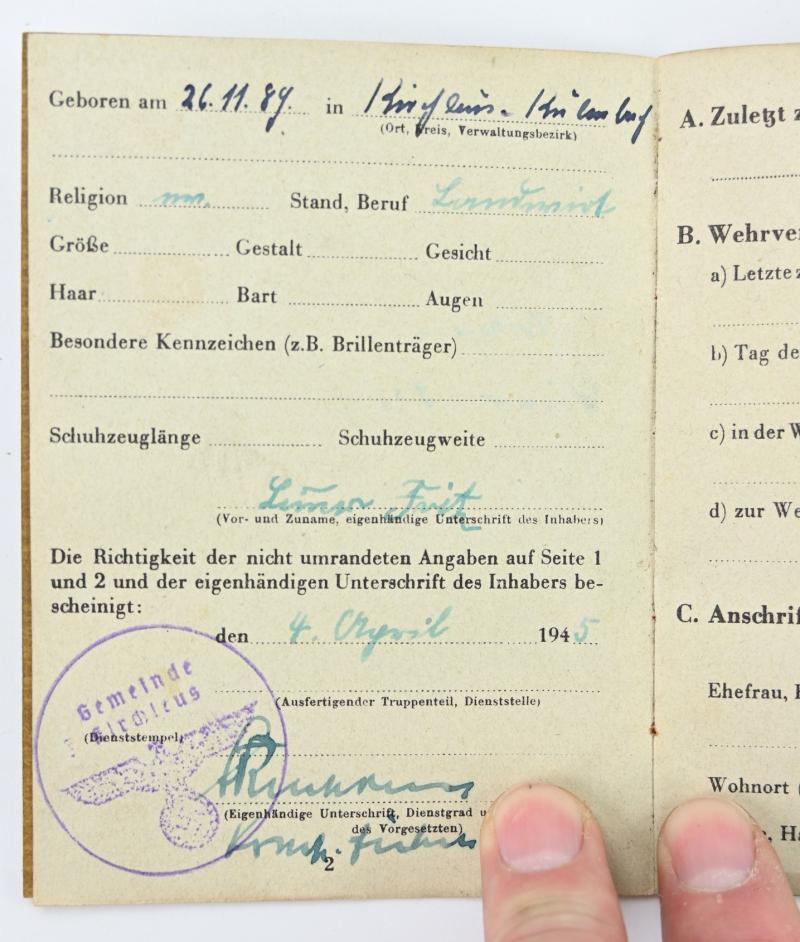 Geboren am 26.11.89. in Kirchleus - Kulmbach
(Ort, Kreis, Verwaltungsbezirk)
Religion ev. Stand, Beruf Landwirt
Größe Gestalt Gesicht
Haar Bart Augen
Besondere Kennzeichen (z.B. Brillenträger)
Schuhzeuglänge Schuhzeugweite
Fritz
(Vor- und Zuname, eigenhändige Unterschrift des Inhabers)
Die Richtigkeit der nicht umrandeten Angaben auf Seite 1
und 2 und der eigenhändigen Unterschrift des Inhabers be-
scheinigt:
den 4. April 1945
(Ausfertigender Truppenteil, Dienststelle)
Gemeinde
Kirchleus
(Dienststempel)
(Eigenhändige Unterschrift, Dienstgrad u
des Vorgesetzten)
2
A. Zuletzt z
B. Wehrve
a) Letzte
b) Tag de
c) in der W
d) zur We
C. Anschrif
Ehefrau,
Wohnort (